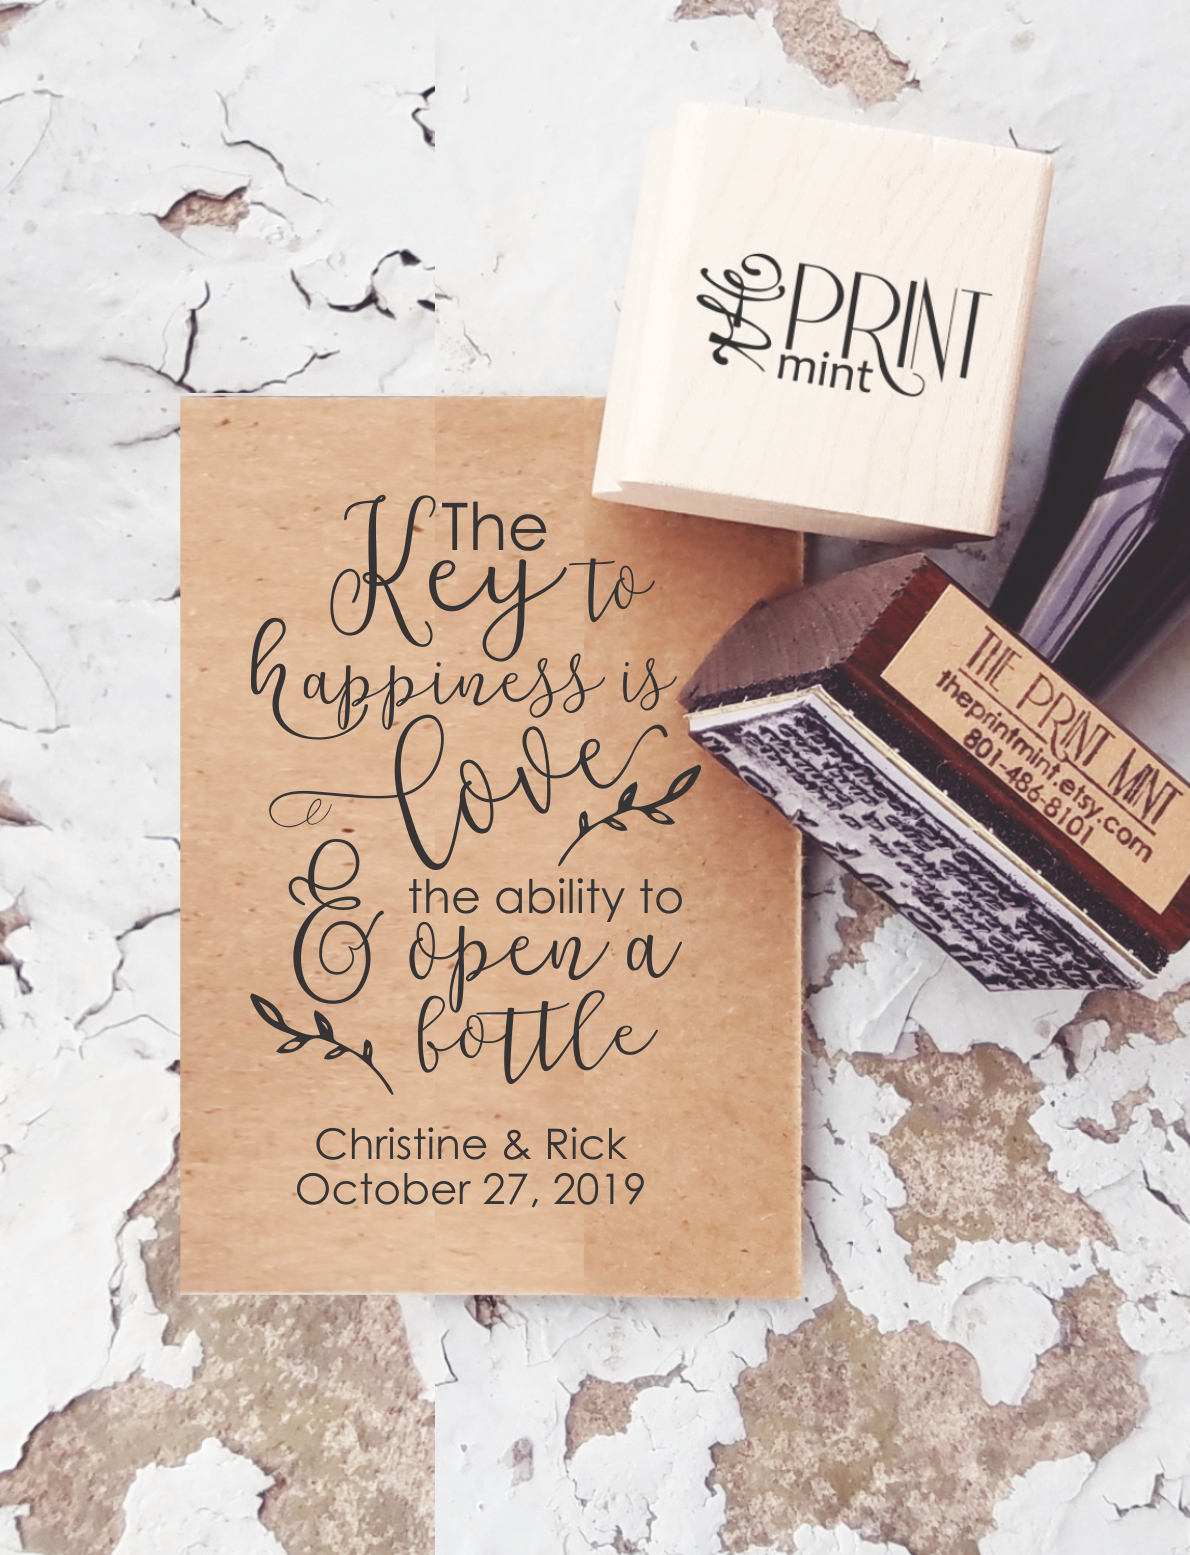 the PRINT
mint
The
Key to
happiness is
love
& the ability to
open a
bottle
Christine & Rick
October 27, 2019
THE PRINT MINT
theprintmint.etsy.com
801-486-8101